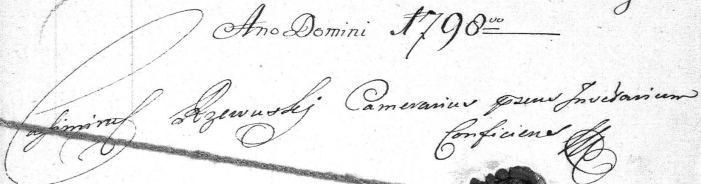 Ano Domini 1798vo
Casimirus Rzewuskj Camerarius pzens Inve͞tarium
Conficiens